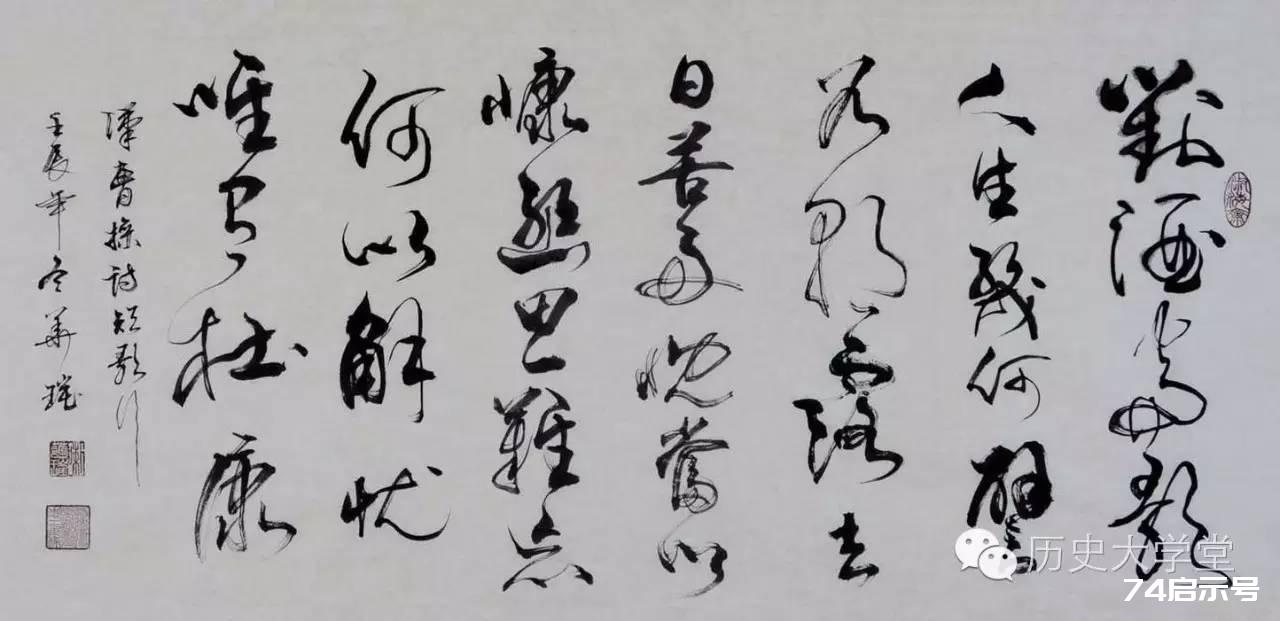 對酒當歌
人生幾何譬
若朝露去
日苦多慨當以
慷思難忘
何以解忧
唯有杜康
漢曹操诗短歌行
壬辰年冬華
历史大学堂
74启示号